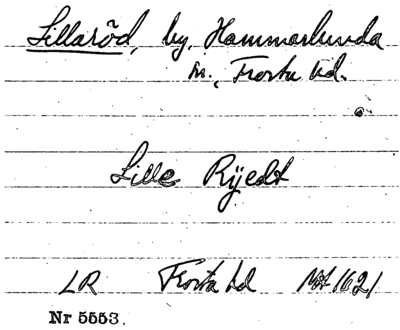 Lillaröd, by, Hammarlunda
sn., Frosta hd.
Lille Rÿedt
LR Frosta hd Mt 1621
Nr 5553.